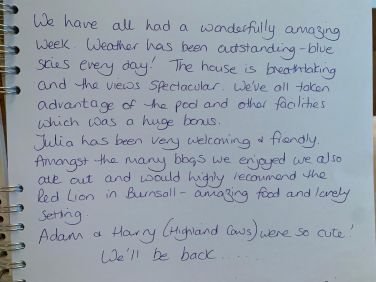 We have all had a wonderfully amazing
week. Weather has been outstanding - blue
skies every day! The house is breathtaking
and the views spectacular. We've all taken
advantage of the pool and other facilities
which was a huge bonus.
Julia has been very welcoming & friendly.
Amongst the many bbqs we enjoyed we also
ate out and would highly recommend the
Red Lion in Burnsall - amazing food and lovely
setting.
Adam & Harry (Highland Cows) were so cute!
We'll be back......